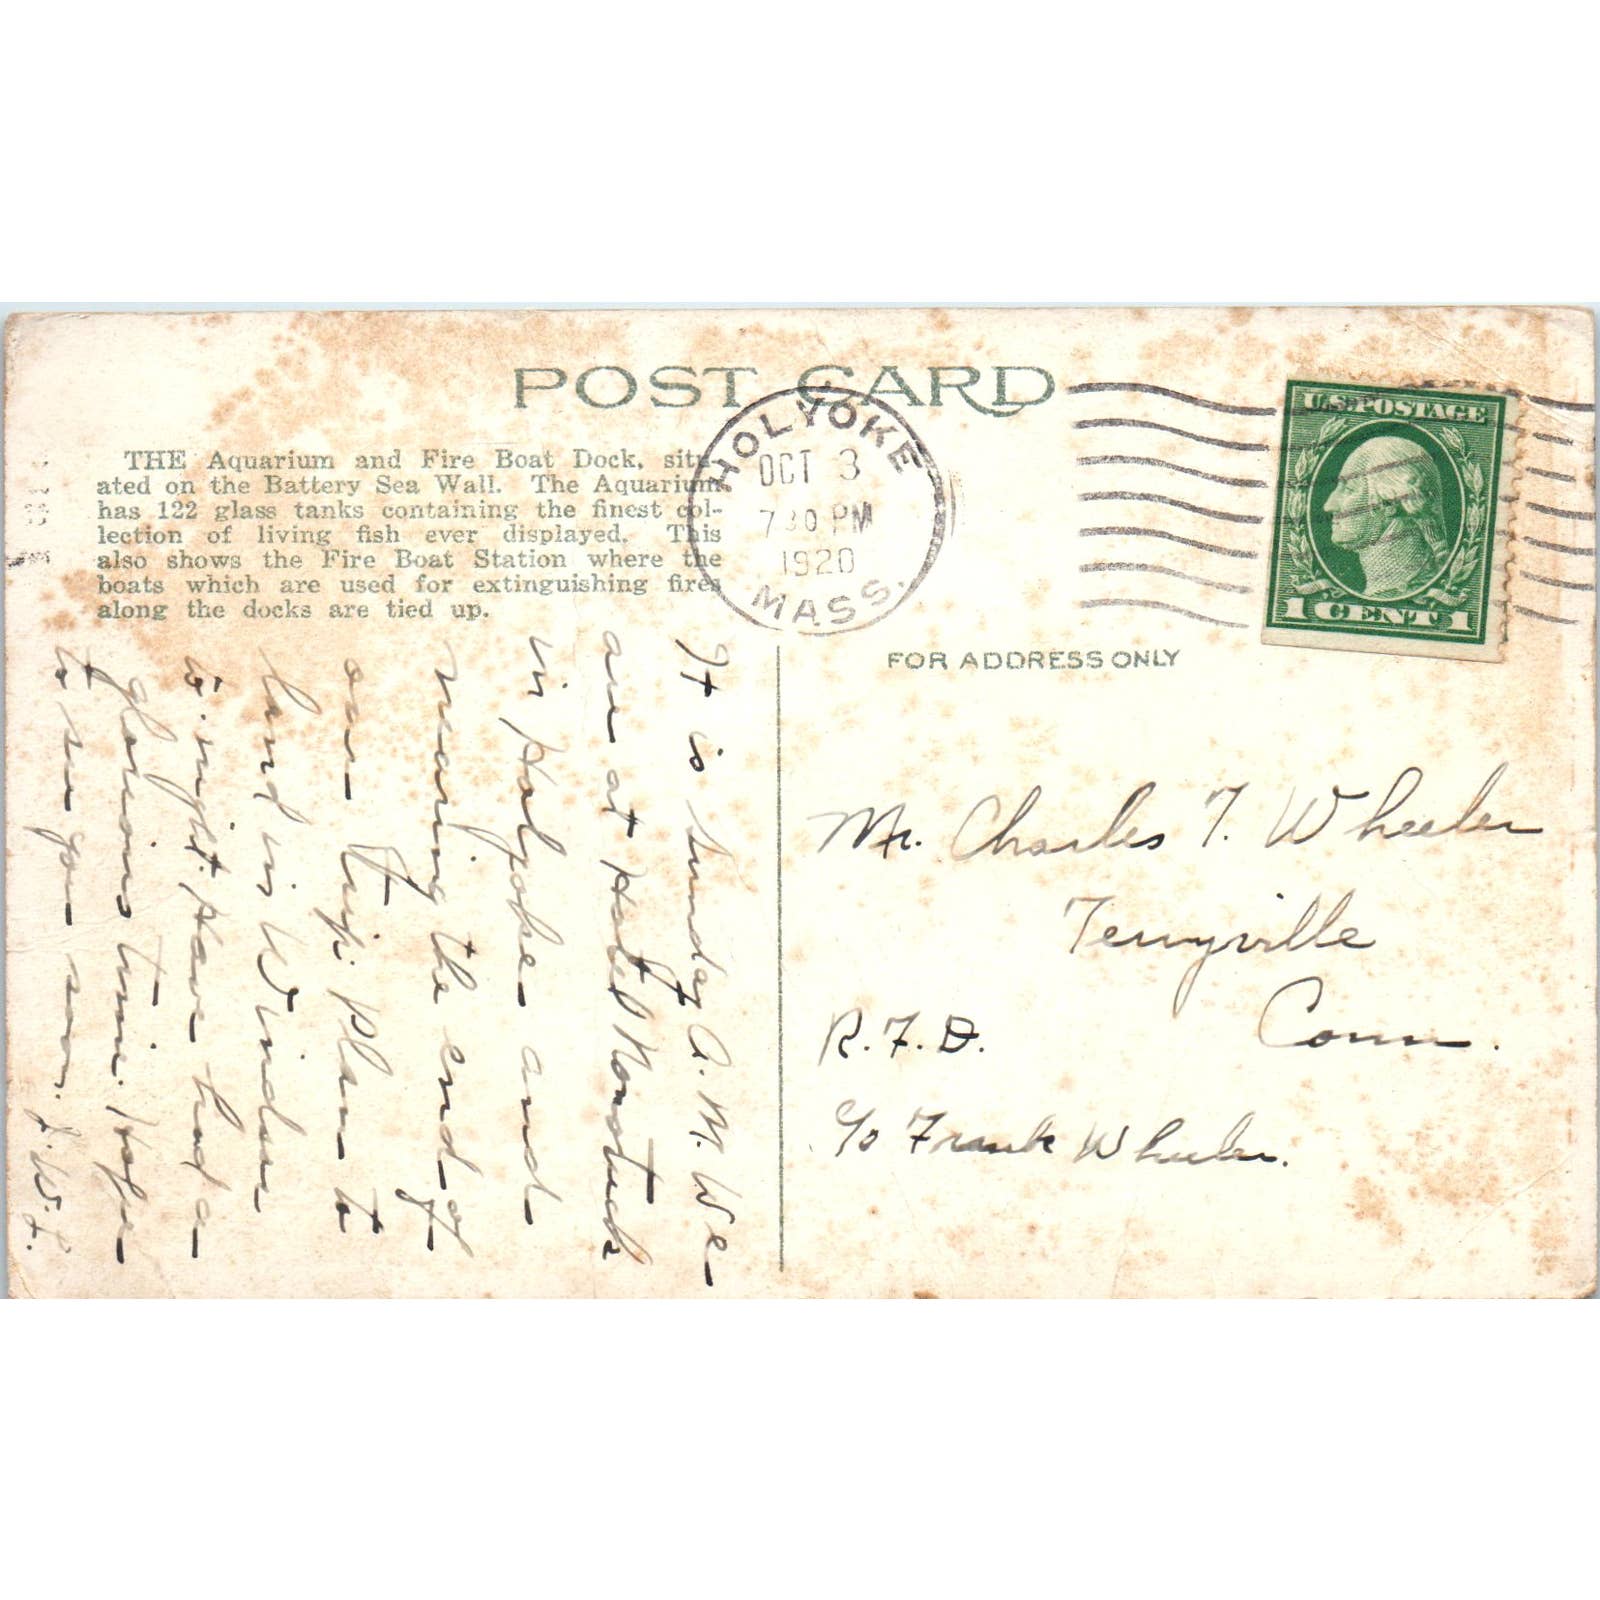 POST CARD
THE Aquarium and Fire Boat Dock, situ-
ated on the Battery Sea Wall. The Aquarium
has 122 glass tanks containing the finest col-
lection of living fish ever displayed. This
also shows the Fire Boat Station where the
boats which are used for extinguishing fires
along the docks are tied up.
HOLYOKE
OCT 3
7 30 PM
1920
MASS.
U.S. POSTAGE
1 CENT 1
FOR ADDRESS ONLY
It is Sunday A.M. We
are at Hotel Nonotuck
in Holyoke and
nearing the end of
our trip. Plan to
land in Windsor
to night. Have had a
glorious time. Hope
to see you soon. J.W.L.
Mr. Charles T. Wheeler
Terryville
Conn.
R.F.D.
c/o Frank Wheeler.